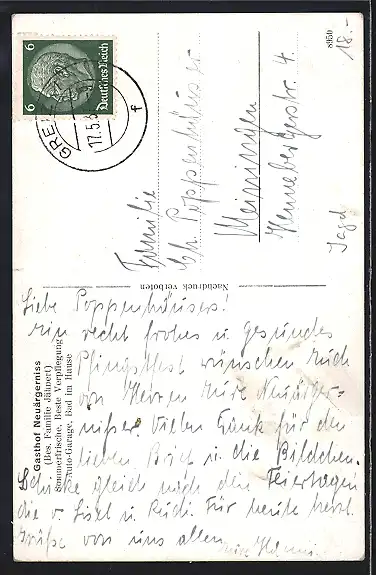 6 6
Deutsches Reich
GREI
17.5.3
f
8950
18.-
Familie
Chr. Poppenhäuser
Meiningen
Hennebergerstr. 4.
Jagd
Nachdruck verboten
Gasthof Neuärgerniss
(Bes. Familie Jähnert)
Sommerfrische, Beste Verpflegung
Auto-Garage, Bad im Hause
Liebe Poppenhäusers!
Ein recht frohes u. gesundes
Pfingstfest wünschen Euch
von Herzen Eure Neuärger-
nißer. Vielen Dank für den
lieben Brief u. die Bildchen.
Schicke gleich nach den Feiertagen
die v. Lisel u. Rudi. Für heute herzl.
Grüße von uns allen